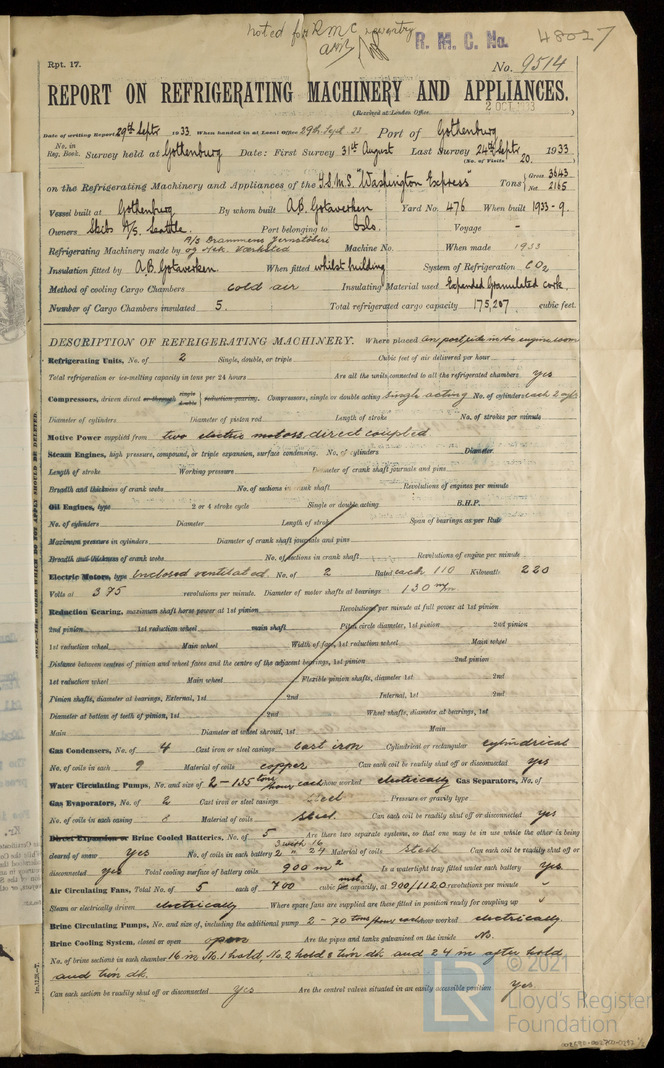 noted for R M C
R. M. C. No. 48027
Rpt. 17.
No. 9514
REPORT ON REFRIGERATING MACHINERY AND APPLIANCES.
(Received at London Office 2 OCT 1933)
Date of writing Report 29th Septr 1933 When handed in at Local Office 29th Sept 33 Port of Gothenburg
No. in Reg. Book. Survey held at Gothenburg Date: First Survey 31st August Last Survey 24th Septr 1933
(No. of Visits 20.)
on the Refrigerating Machinery and Appliances of the T.S.M.S. "Washington Express" Tons Gross 3643 Net 2165
Vessel built at Gothenburg By whom built A.B. Gotaverken Yard No. 476 When built 1933-9.
Owners Skibs A/S. Seattle. Port belonging to Oslo. Voyage -
Refrigerating Machinery made by A/S Drammens Jernstøberi og Mek. Værksted Machine No. When made 1933
Insulation fitted by A.B. Gotaverken. When fitted whilst building System of Refrigeration CO2
Method of cooling Cargo Chambers cold air Insulating Material used Expanded Granulated cork.
Number of Cargo Chambers insulated 5. Total refrigerated cargo capacity 175,207 cubic feet.
DESCRIPTION OF REFRIGERATING MACHINERY. Where placed on port side in the engine room
Refrigerating Units, No. of 2 Single, double, or triple Cubic feet of air delivered per hour
Total refrigeration or ice-melting capacity in tons per 24 hours Are all the units connected to all the refrigerated chambers yes
Compressors, driven direct or through single double reduction gearing. Compressors, single or double acting Single acting No. of cylinders each 2 cyl
Diameter of cylinders Diameter of piston rod Length of stroke No. of strokes per minute
Motive Power supplied from two electric motors, direct coupled
Steam Engines, high pressure, compound, or triple expansion, surface condensing. No. of cylinders Diameter
Length of stroke Working pressure Diameter of crank shaft journals and pins
Breadth and thickness of crank webs No. of sections in crank shaft Revolutions of engines per minute
Oil Engines, type 2 or 4 stroke cycle Single or double acting B.H.P.
No. of cylinders Diameter Length of stroke Span of bearings as per Rule
Maximum pressure in cylinders Diameter of crank shaft journals and pins
Breadth and thickness of crank webs No. of sections in crank shaft Revolutions of engine per minute
Electric Motors, type Enclosed ventilated No. of 2 Rated each 110 Kilowatts 220
Volts at 375 revolutions per minute. Diameter of motor shafts at bearings 130 m/m
Reduction Gearing, maximum shaft horse power at 1st pinion Revolutions per minute at full power at 1st pinion
2nd pinion 1st reduction wheel main shaft Pitch circle diameter, 1st pinion 2nd pinion
1st reduction wheel Main wheel Width of face, 1st reduction wheel Main wheel
Distance between centres of pinion and wheel faces and the centre of the adjacent bearings, 1st pinion 2nd pinion
1st reduction wheel Main wheel Flexible pinion shafts, diameter 1st 2nd
Pinion shafts, diameter at bearings, External, 1st 2nd Internal, 1st 2nd
Diameter at bottom of teeth of pinion, 1st 2nd Wheel shafts, diameter at bearings, 1st
Main Diameter at wheel shroud, 1st Main
Gas Condensers, No. of 4 Cast iron or steel casings cast iron Cylindrical or rectangular cylindrical
No. of coils in each 9 Material of coils copper Can each coil be readily shut off or disconnected yes
Water Circulating Pumps, No. and size of 2-135 tons/hour each how worked electrically Gas Separators, No. of
Gas Evaporators, No. of 2 Cast iron or steel casings steel Pressure or gravity type
No. of coils in each casing 8 Material of coils steel. Can each coil be readily shut off or disconnected yes
Direct Expansion or Brine Cooled Batteries, No. of 5 Are there two separate systems, so that one may be in use while the other is being
cleared of snow yes No. of coils in each battery 3 with 16 2 " 24 Material of coils steel Can each coil be readily shut off or
disconnected yes Total cooling surface of battery coils 900 m2 Is a watertight tray fitted under each battery yes.
Air Circulating Fans, Total No. of 5 each of 700 cubic feet capacity, at 900/1120 revolutions per minute
Steam or electrically driven electrically Where spare fans are supplied are these fitted in position ready for coupling up
Brine Circulating Pumps, No. and size of, including the additional pump 2-70 tons/hour each how worked electrically.
Brine Cooling System, closed or open open Are the pipes and tanks galvanised on the inside No.
No. of brine sections in each chamber 16 in No. 1 hold, No. 2 hold & twn dk and 24 in after hold
and twn dk.
Can each section be readily shut off or disconnected yes Are the control valves situated in an easily accessible position yes.
© 2021
LR Lloyd's Register
Foundation